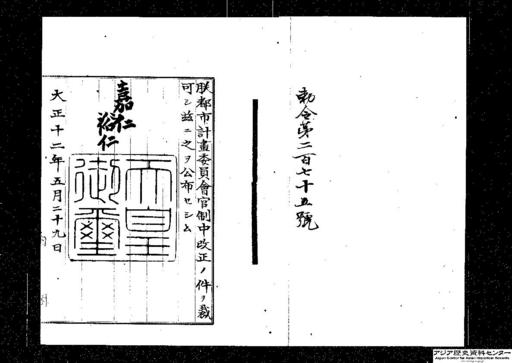 勅令第二百七十五號
朕都市計畫委員會官制中改正ノ件ヲ裁
可シ茲ニ之ヲ公布セシム
嘉仁
裕仁
天皇
御璽
大正十二年五月二十九日
アジア歴史資料センター
Japan Center for Asian Historical Records